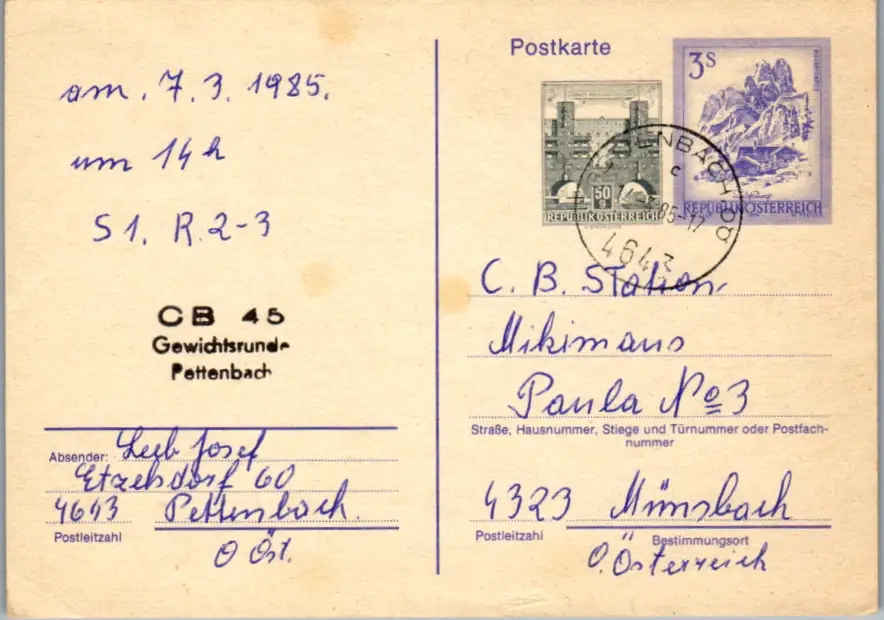 am. 7.3. 1985.
um 14 h
S1. R. 2-3
CB 45
Gewichtsrunde
Pettenbach
Absender: Leeb Josef
Etzelsdorf 60
4643 Pettenbach.
Postleitzahl
O Öst.
Postkarte
50 g
REPUBLIK ÖSTERREICH
3 S
REPUBLIK ÖSTERREICH
PETTENBACH OÖ
c
3.85-17
4643
C. B. Station,
Mikimaus
Paula No 3
Straße, Hausnummer, Stiege und Türnummer oder Postfach-
nummer
4323 Münsbach
Postleitzahl
Bestimmungsort
O. Österreich